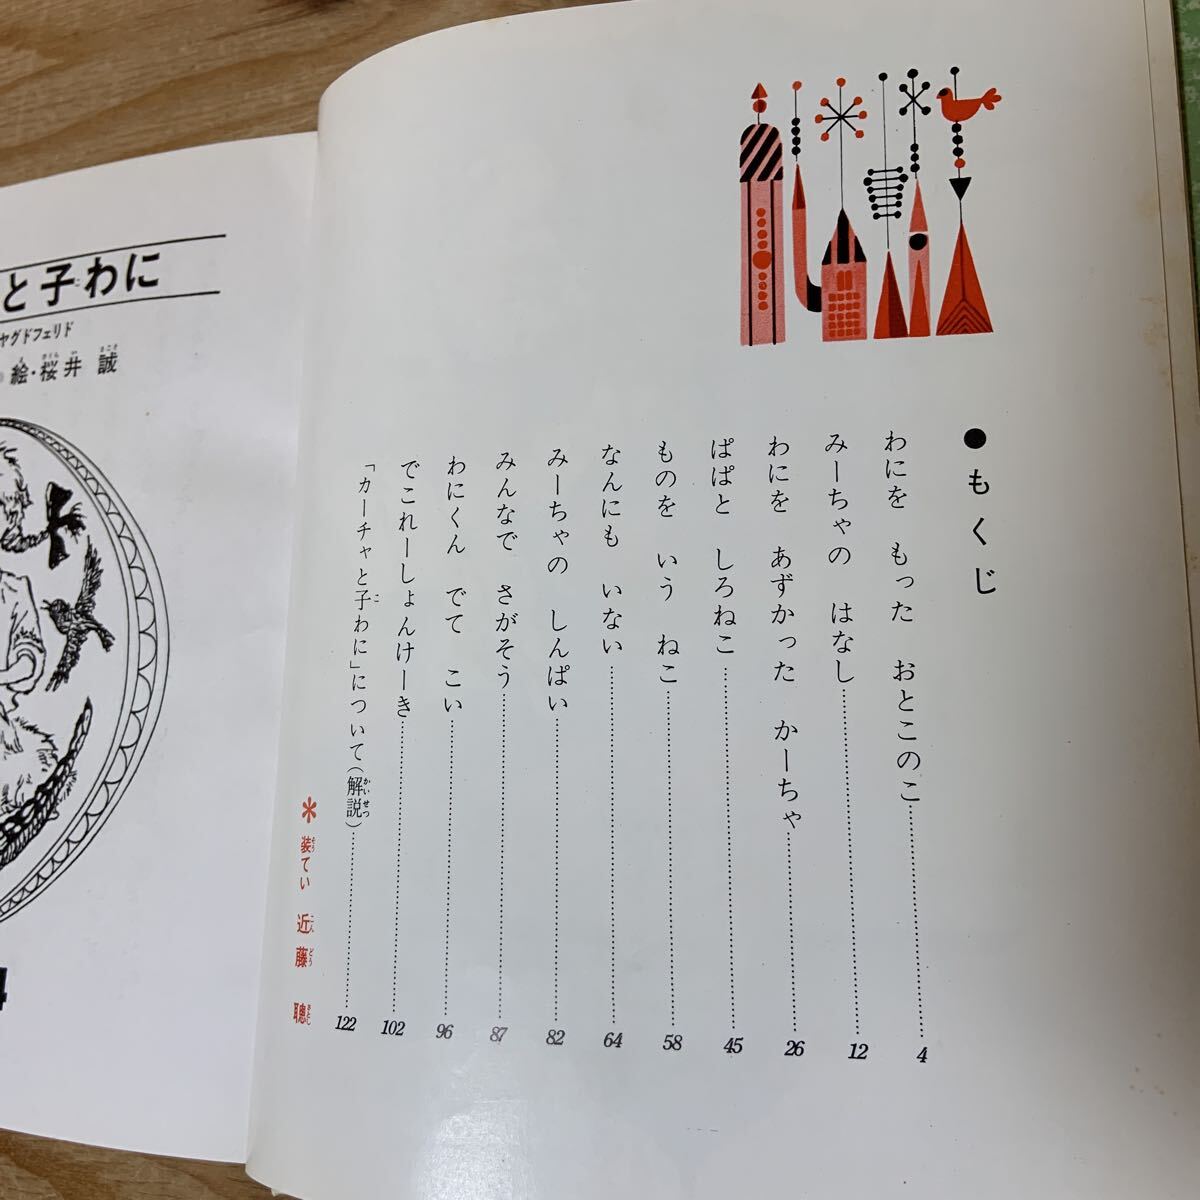 ●もくじ
わにを もった おとこのこ 4
みーちゃの はなし 12
わにを あずかった かーちゃ 26
ぱぱと しろねこ 45
ものを いう ねこ 58
なんにも いない 64
みーちゃの しんぱい 82
みんなで さがそう 87
わにくん でて こい 96
でこれーしょんけーき 102
「カーチャと子わに」について(解説) 122
*装てい 近藤 聰
と子わに
ヤグドフェリド
絵・桜井 誠